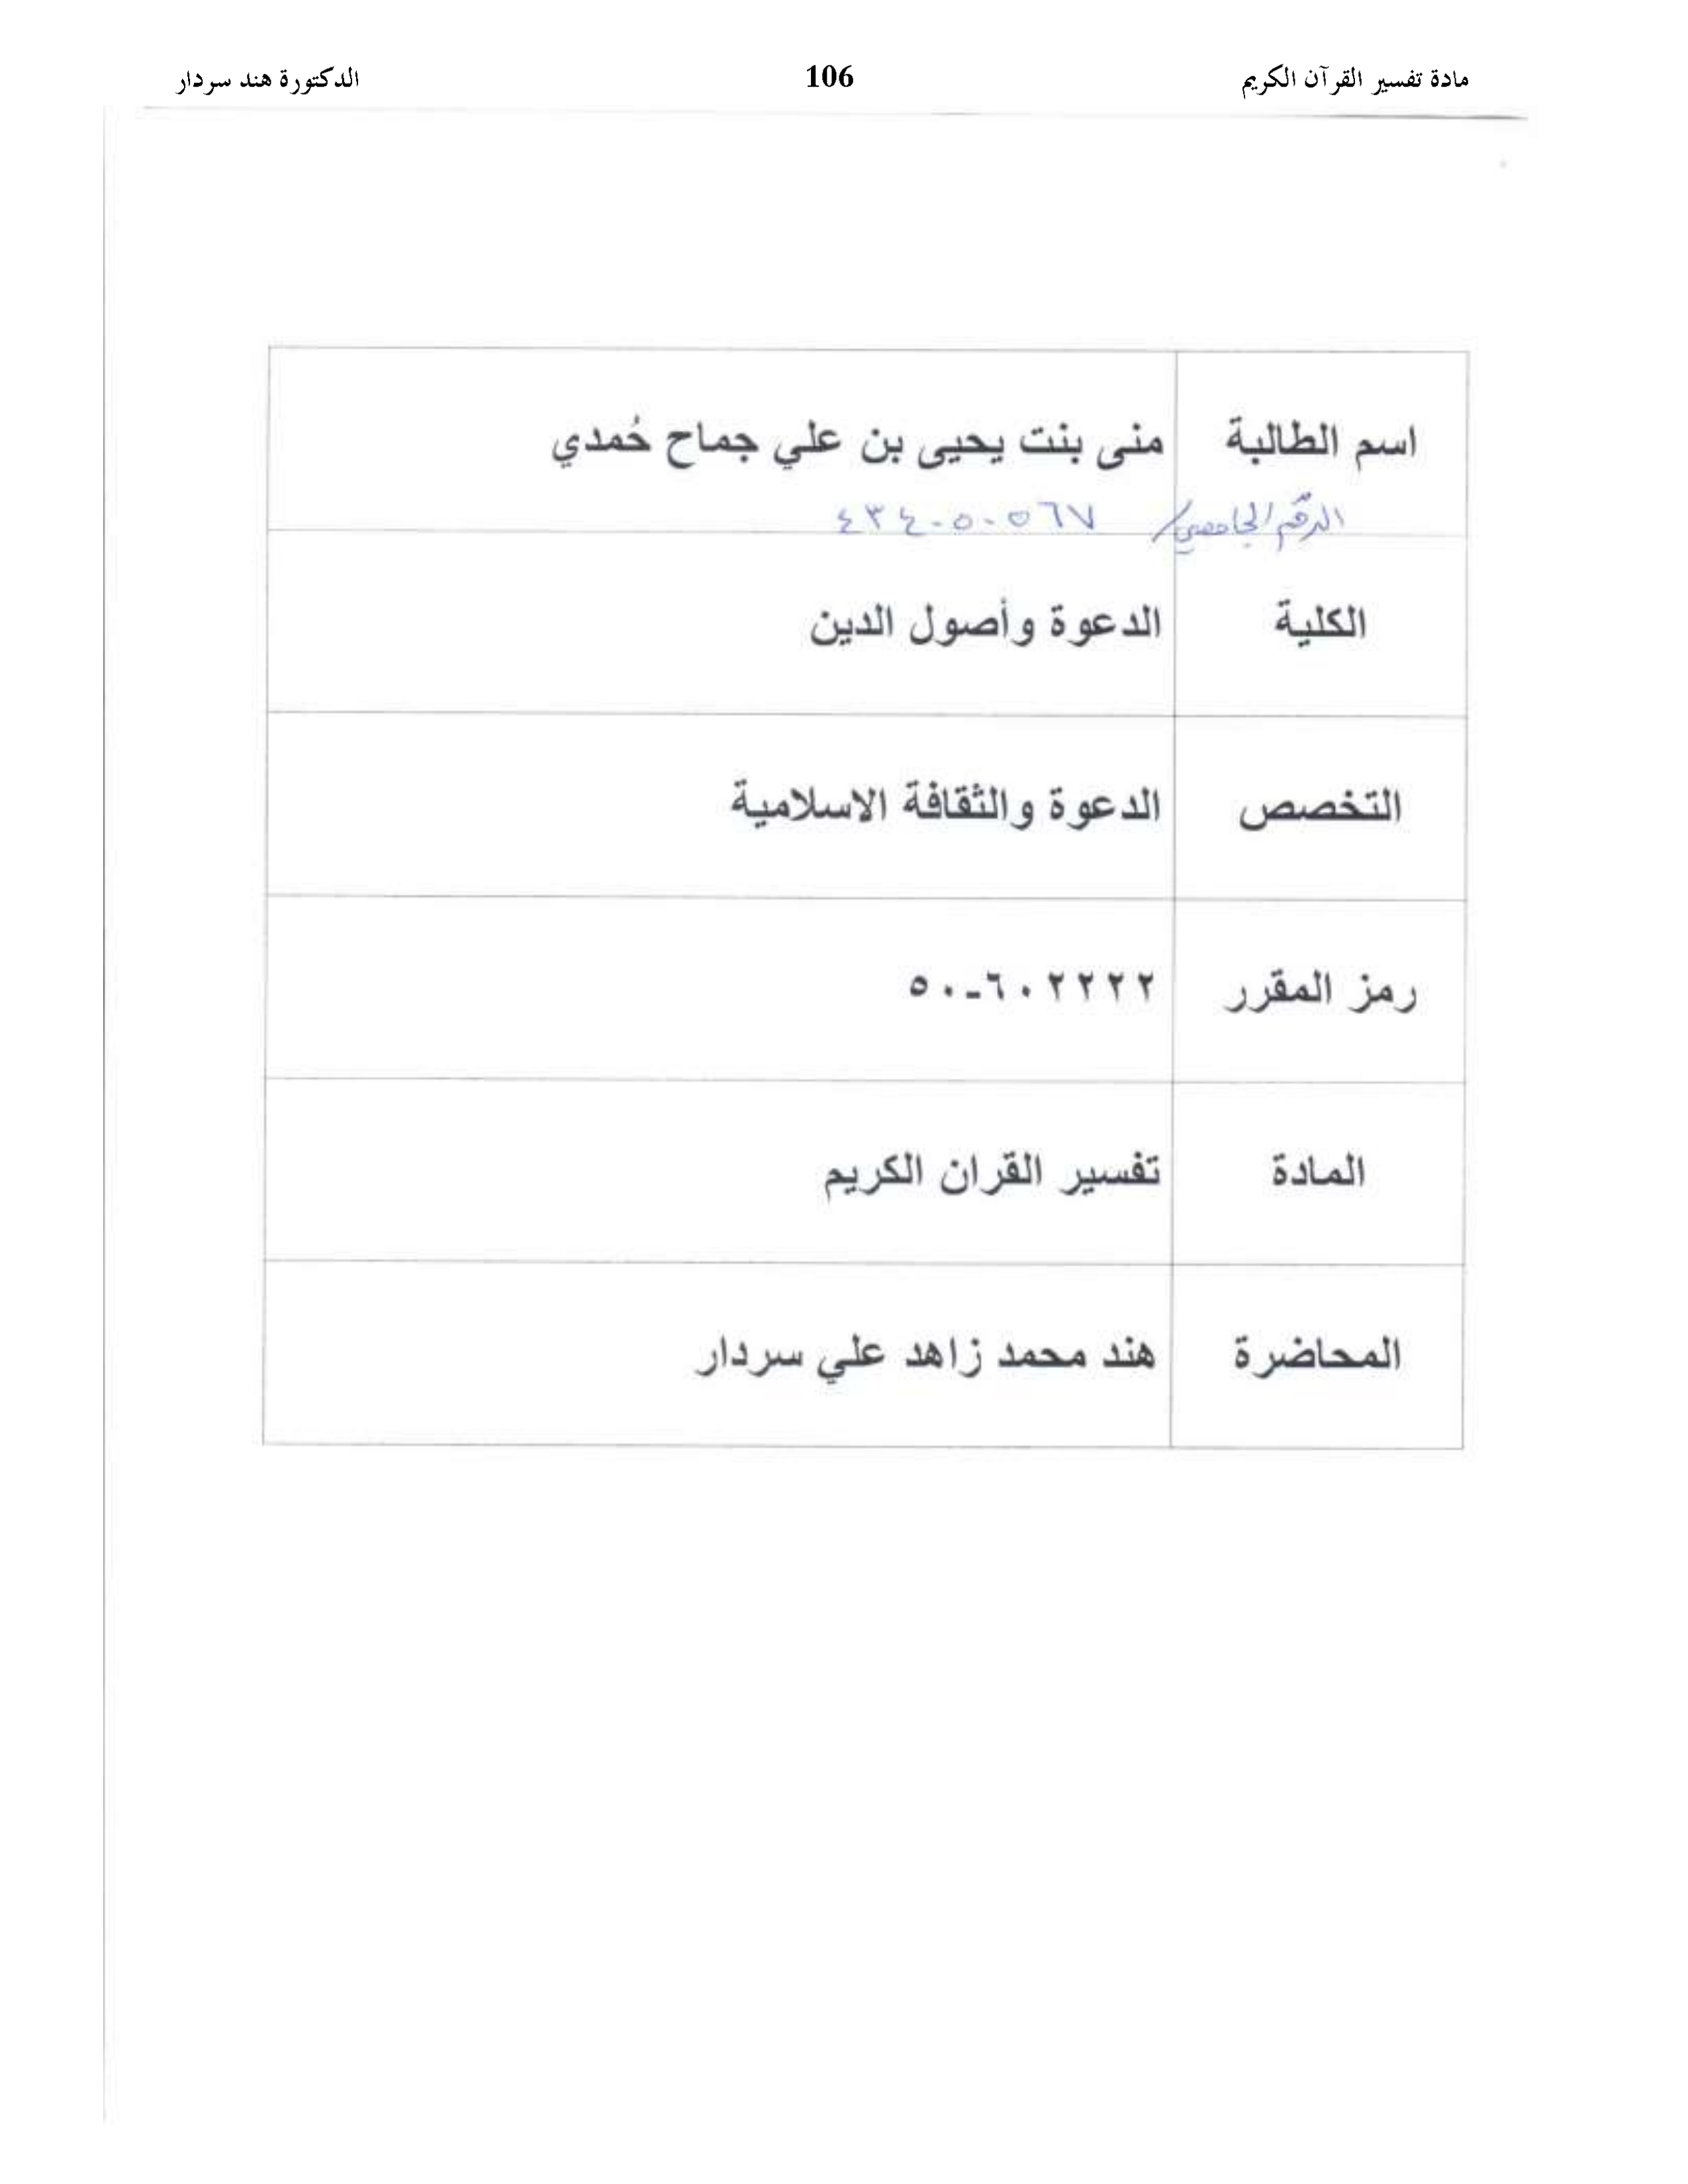 مادة تفسير القرآن الكريم 106 الدكتورة هند سردار
اسم الطالبة منى بنت يحيى بن علي جماح حُمدي
الرقم الجامعي/ ٤٣٤٠٥٠٥٦٧
الكلية الدعوة وأصول الدين
التخصص الدعوة والثقافة الاسلامية
رمز المقرر ٥٠-٦٠٢٢٢٢
المادة تفسير القران الكريم
المحاضرة هند محمد زاهد علي سردار